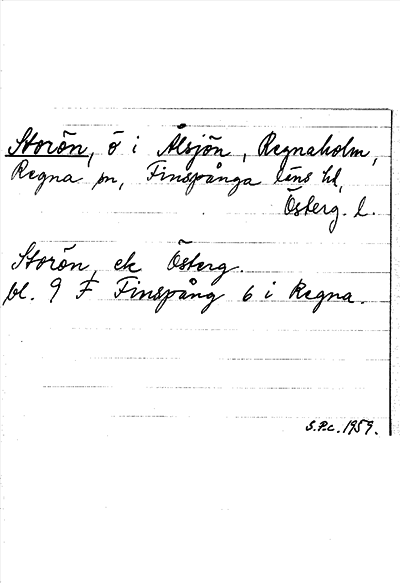 Storön, ö i Ålsjön, Regnaholm,
Regna sn, Finspånga läns hd,
Österg. l.
Storön, ek Österg.
bl. 9 F Finspång 6 i Regna.
S.P.c. 1959.